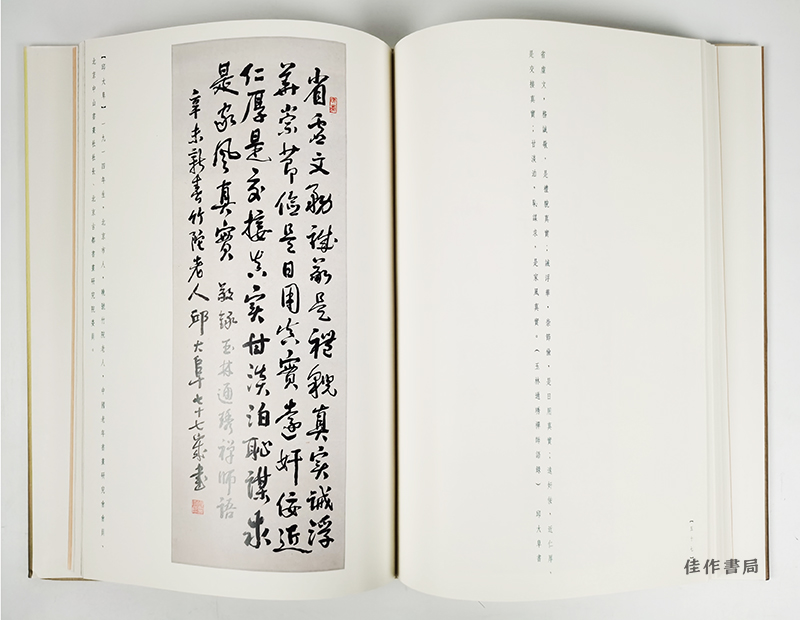 省虛文，務誠敬，是禮貌真實；誡浮華，崇節儉，是日用真實；遠奸佞，近仁厚，
是交接真實；甘淡泊，恥謀求，是家風真實。（玉林通琇禪師語錄） 邱大阜書
省虛文務誠敬是禮貌真实誡浮
華崇節儉是日用真實遠奸佞近
仁厚是交接真实甘淡泊恥謀求
是家風真實 敬録玉林通琇禪師語
辛未新春竹院老人邱大阜七十七歲書
【邱大阜】一九一四年生，北京市人，晚號竹院老人，中國老年書畫研究會會員，
北京中山書畫社社長，北京古都書畫研究院委員。
佳作書局